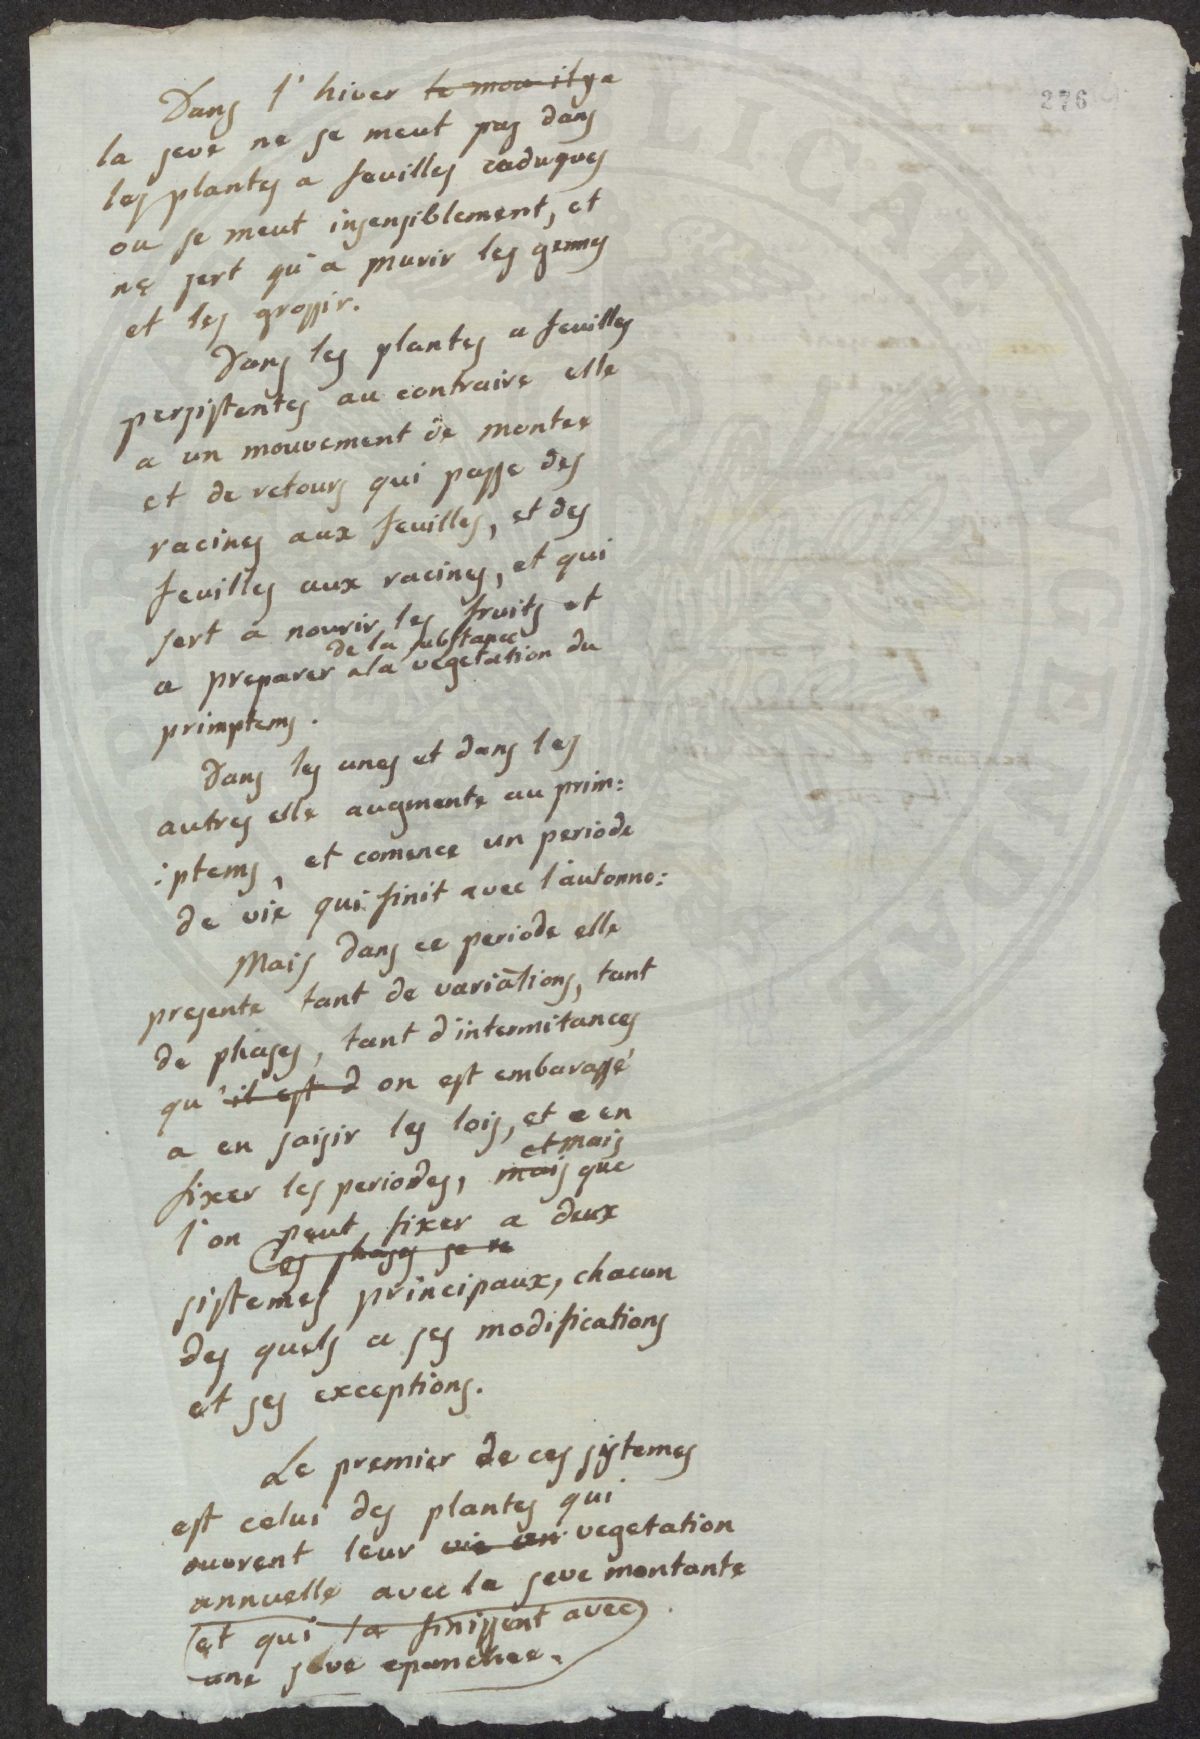 276
Dans l'hiver le mou il y a
la seve ne se meut pas dans
les plantes a feuilles caduques
ou se meut insensiblement, et
ne sert qu'a murir les germes
et les grossir.
Dans les plantes a feuilles
persistentes au contraire elle
a un mouvement de montee
et de retours qui passe des
racines aux feuilles, et des
feuilles aux racines, et qui
sert a nourir les fruits et
de la substance
a preparer a la vegetation du
primptems.
Dans les unes et dans les
autres elle augmente au prim:
:ptems, et comence un periode
de vie qui finit avec l'automno:
Mais dans ce periode elle
presente tant de variations, tant
de phases, tant d'intermitances
qu'il est d on est embarassé
a en saisir les lois, et e en
et mais
fixer les periodes, mais que
l'on peut fixer a deux
es phases se re
sistemes principaux, chacun
des quels a ses modifications
et ses exceptions.
Le premier de ces sistemes
est celui des plantes qui
ouvrent leur vie vegetation
annuelle avec la seve montante
et qui la finissent avec
une seve epanchee.